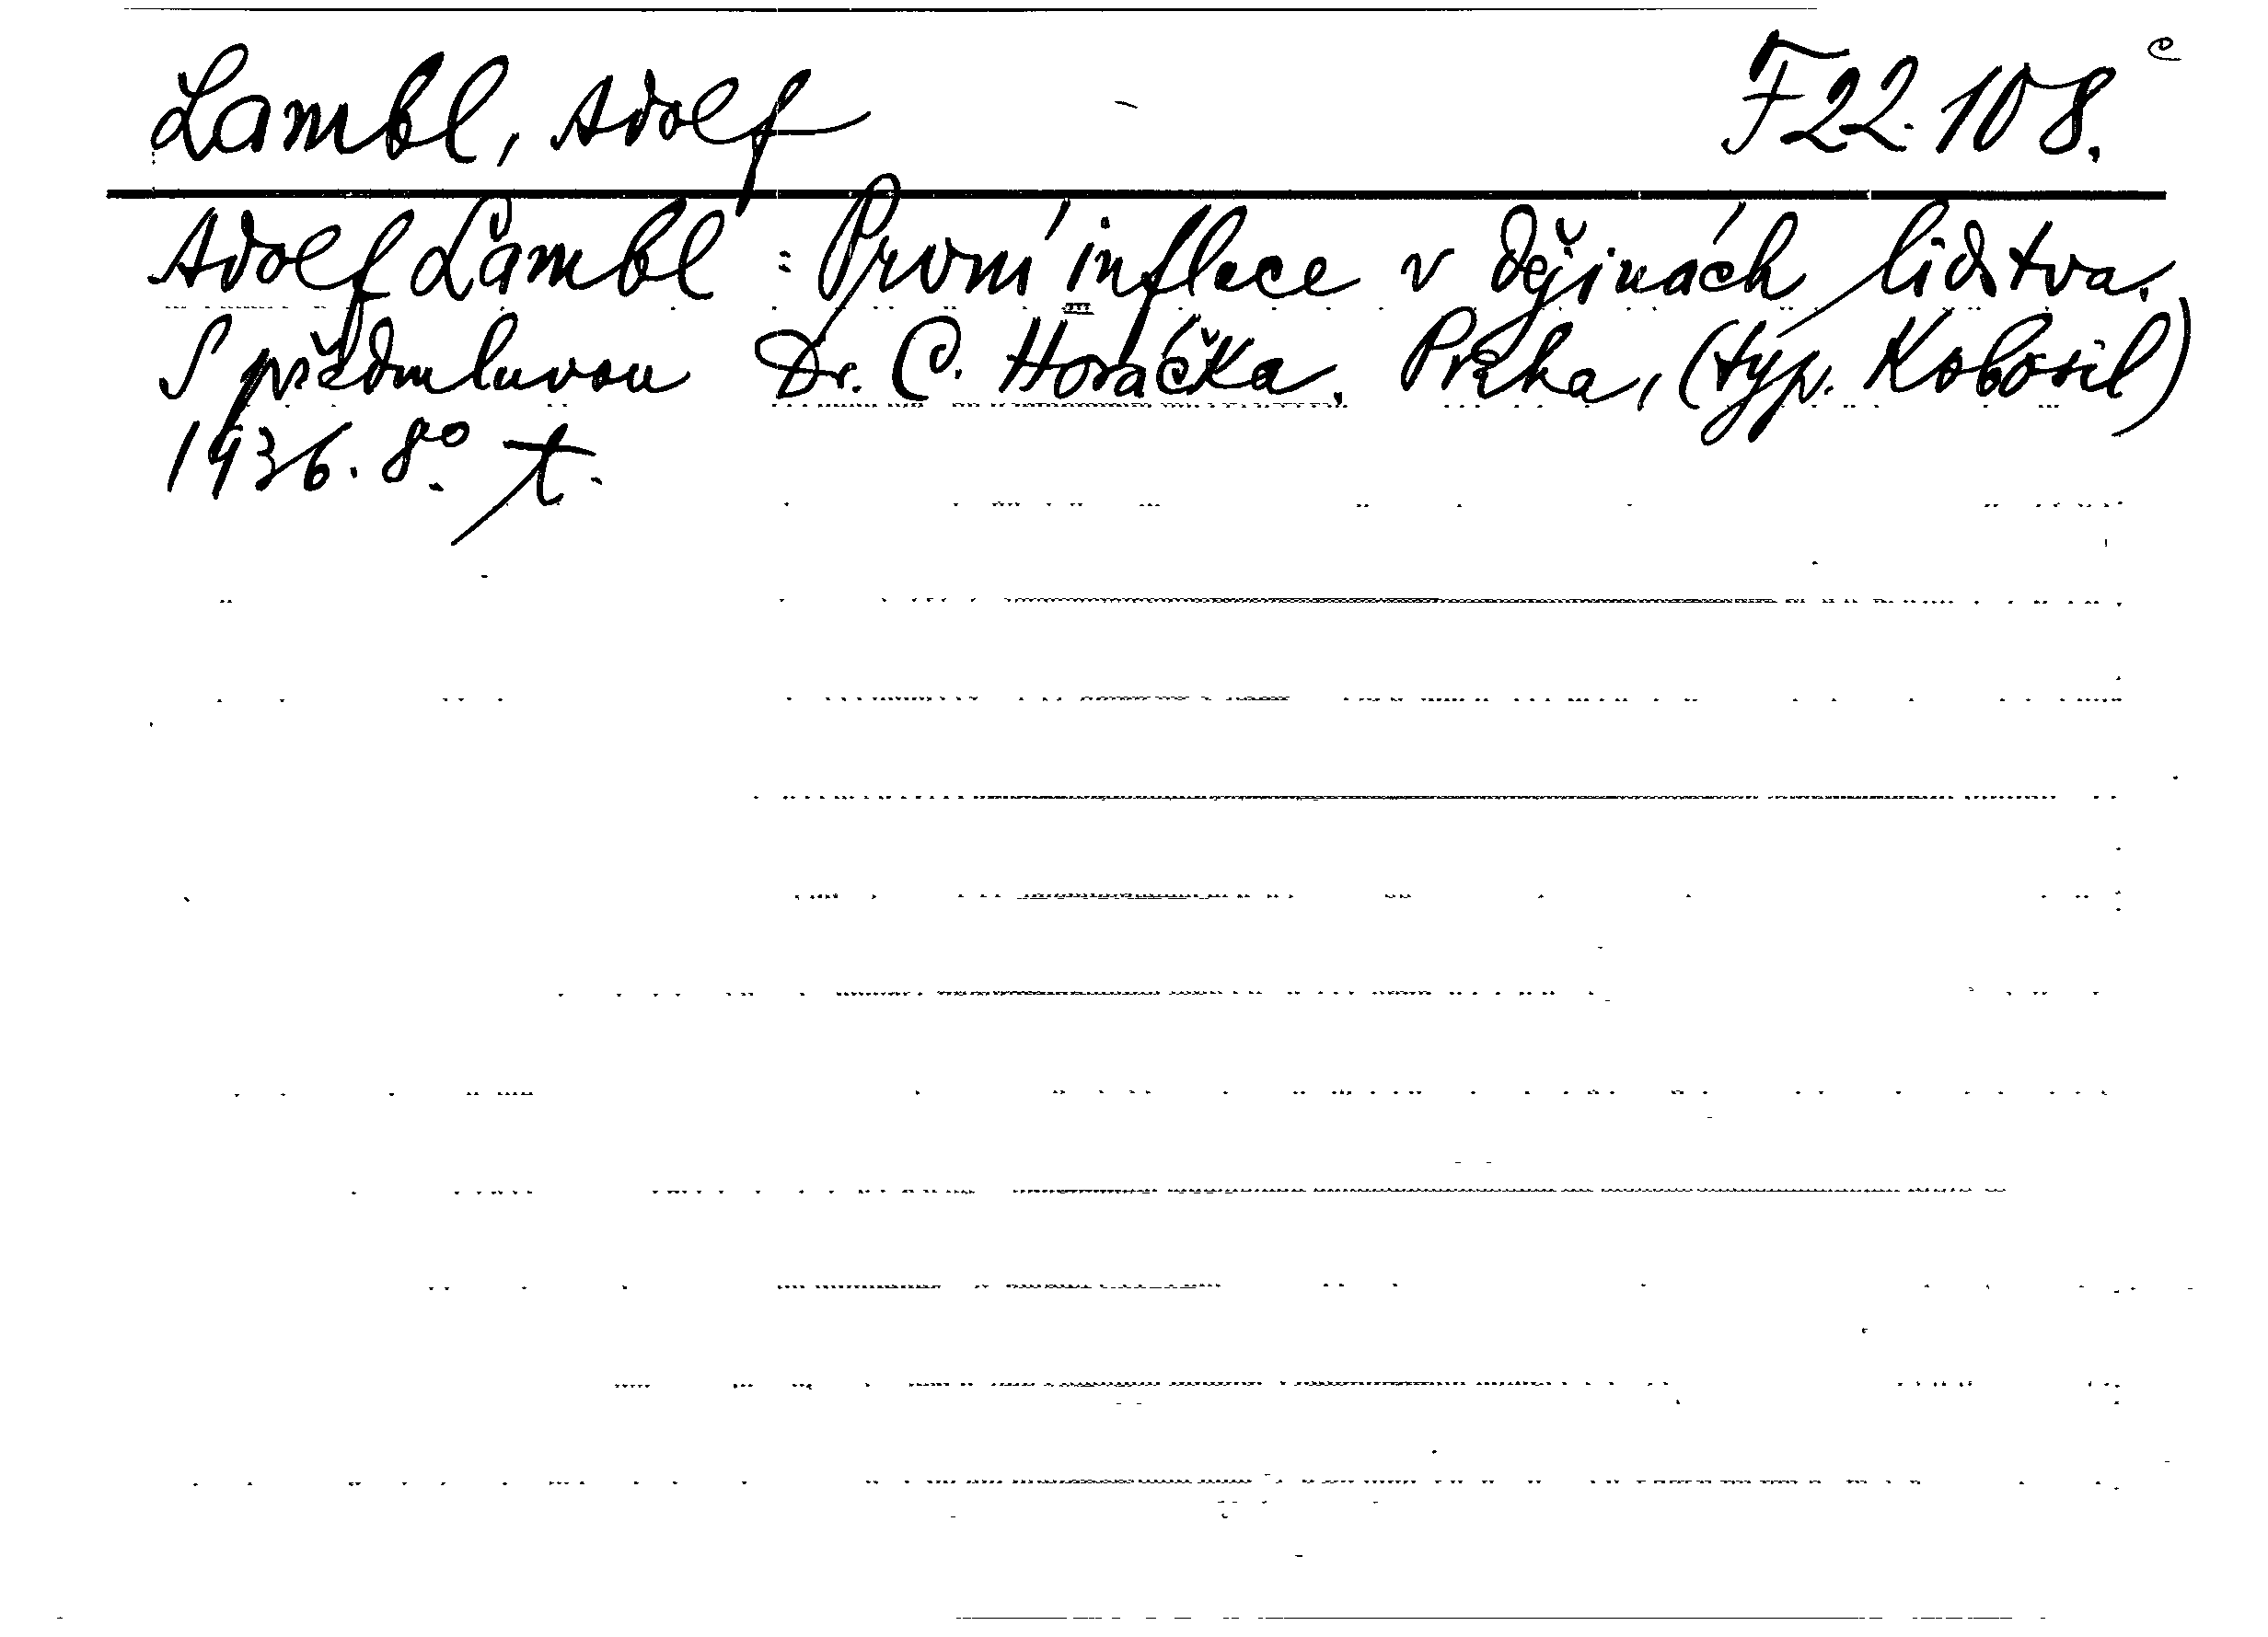 Lambl, Adolf F 22.108. c
Adolf Lambl : První inflace v dějinách lidstva.
S předmluvou Dr. C. Horáčka. Praha, (typ. Kobosil)
1936. 8°. t.